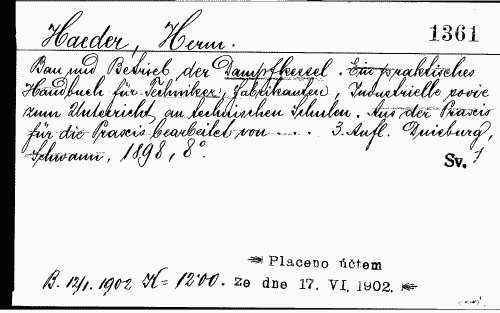 Haeder, Herm.
1361
Bau und Betrieb der Dampfkessel. Ein praktisches
Handbuch für Techniker, Fabrikanten, Industrielle sowie
zum Unterricht an technischen Schulen. Aus der Praxis
für die Praxis bearbeitet von . . . . 3. Aufl. Duisburg,
Schwann, 1898, 8°.
Sv. 1
Placeno účtem
B. 12/1. 1902 K = 12·00. ze dne 17. VI. 1902.